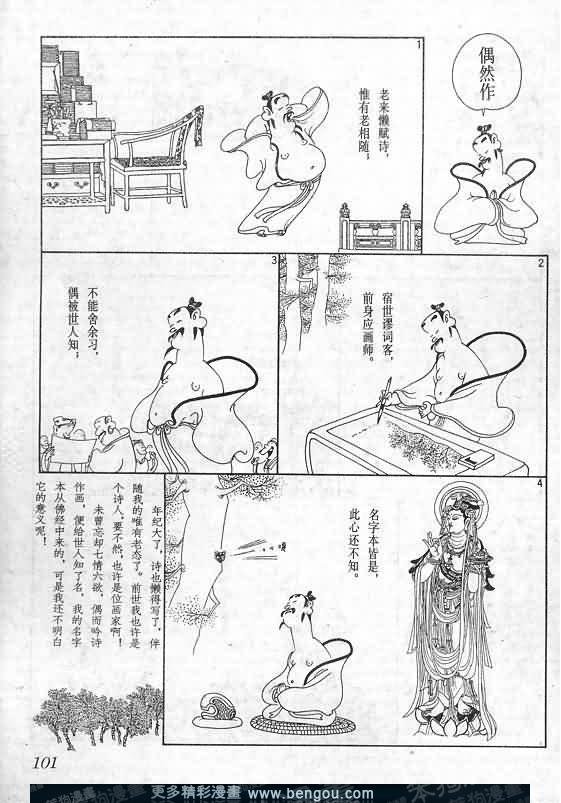 偶然作
1
老来懒赋诗，
惟有老相随；
2
宿世谬词客，
前身应画师。
3
不能舍余习，
偶被世人知；
4
名字本皆是，
此心还不知。
嘎
年纪大了，诗也懒得写了，伴
随我的唯有老态了。前世我也许是
个诗人，要不然，也许是位画家啊！
未曾忘却七情六欲，偶而吟诗
作画，便给世人知了名，我的名字
本从佛经中来的，可是我还不明白
它的意义呢！
101
更多精彩漫畫 www.bengou.com